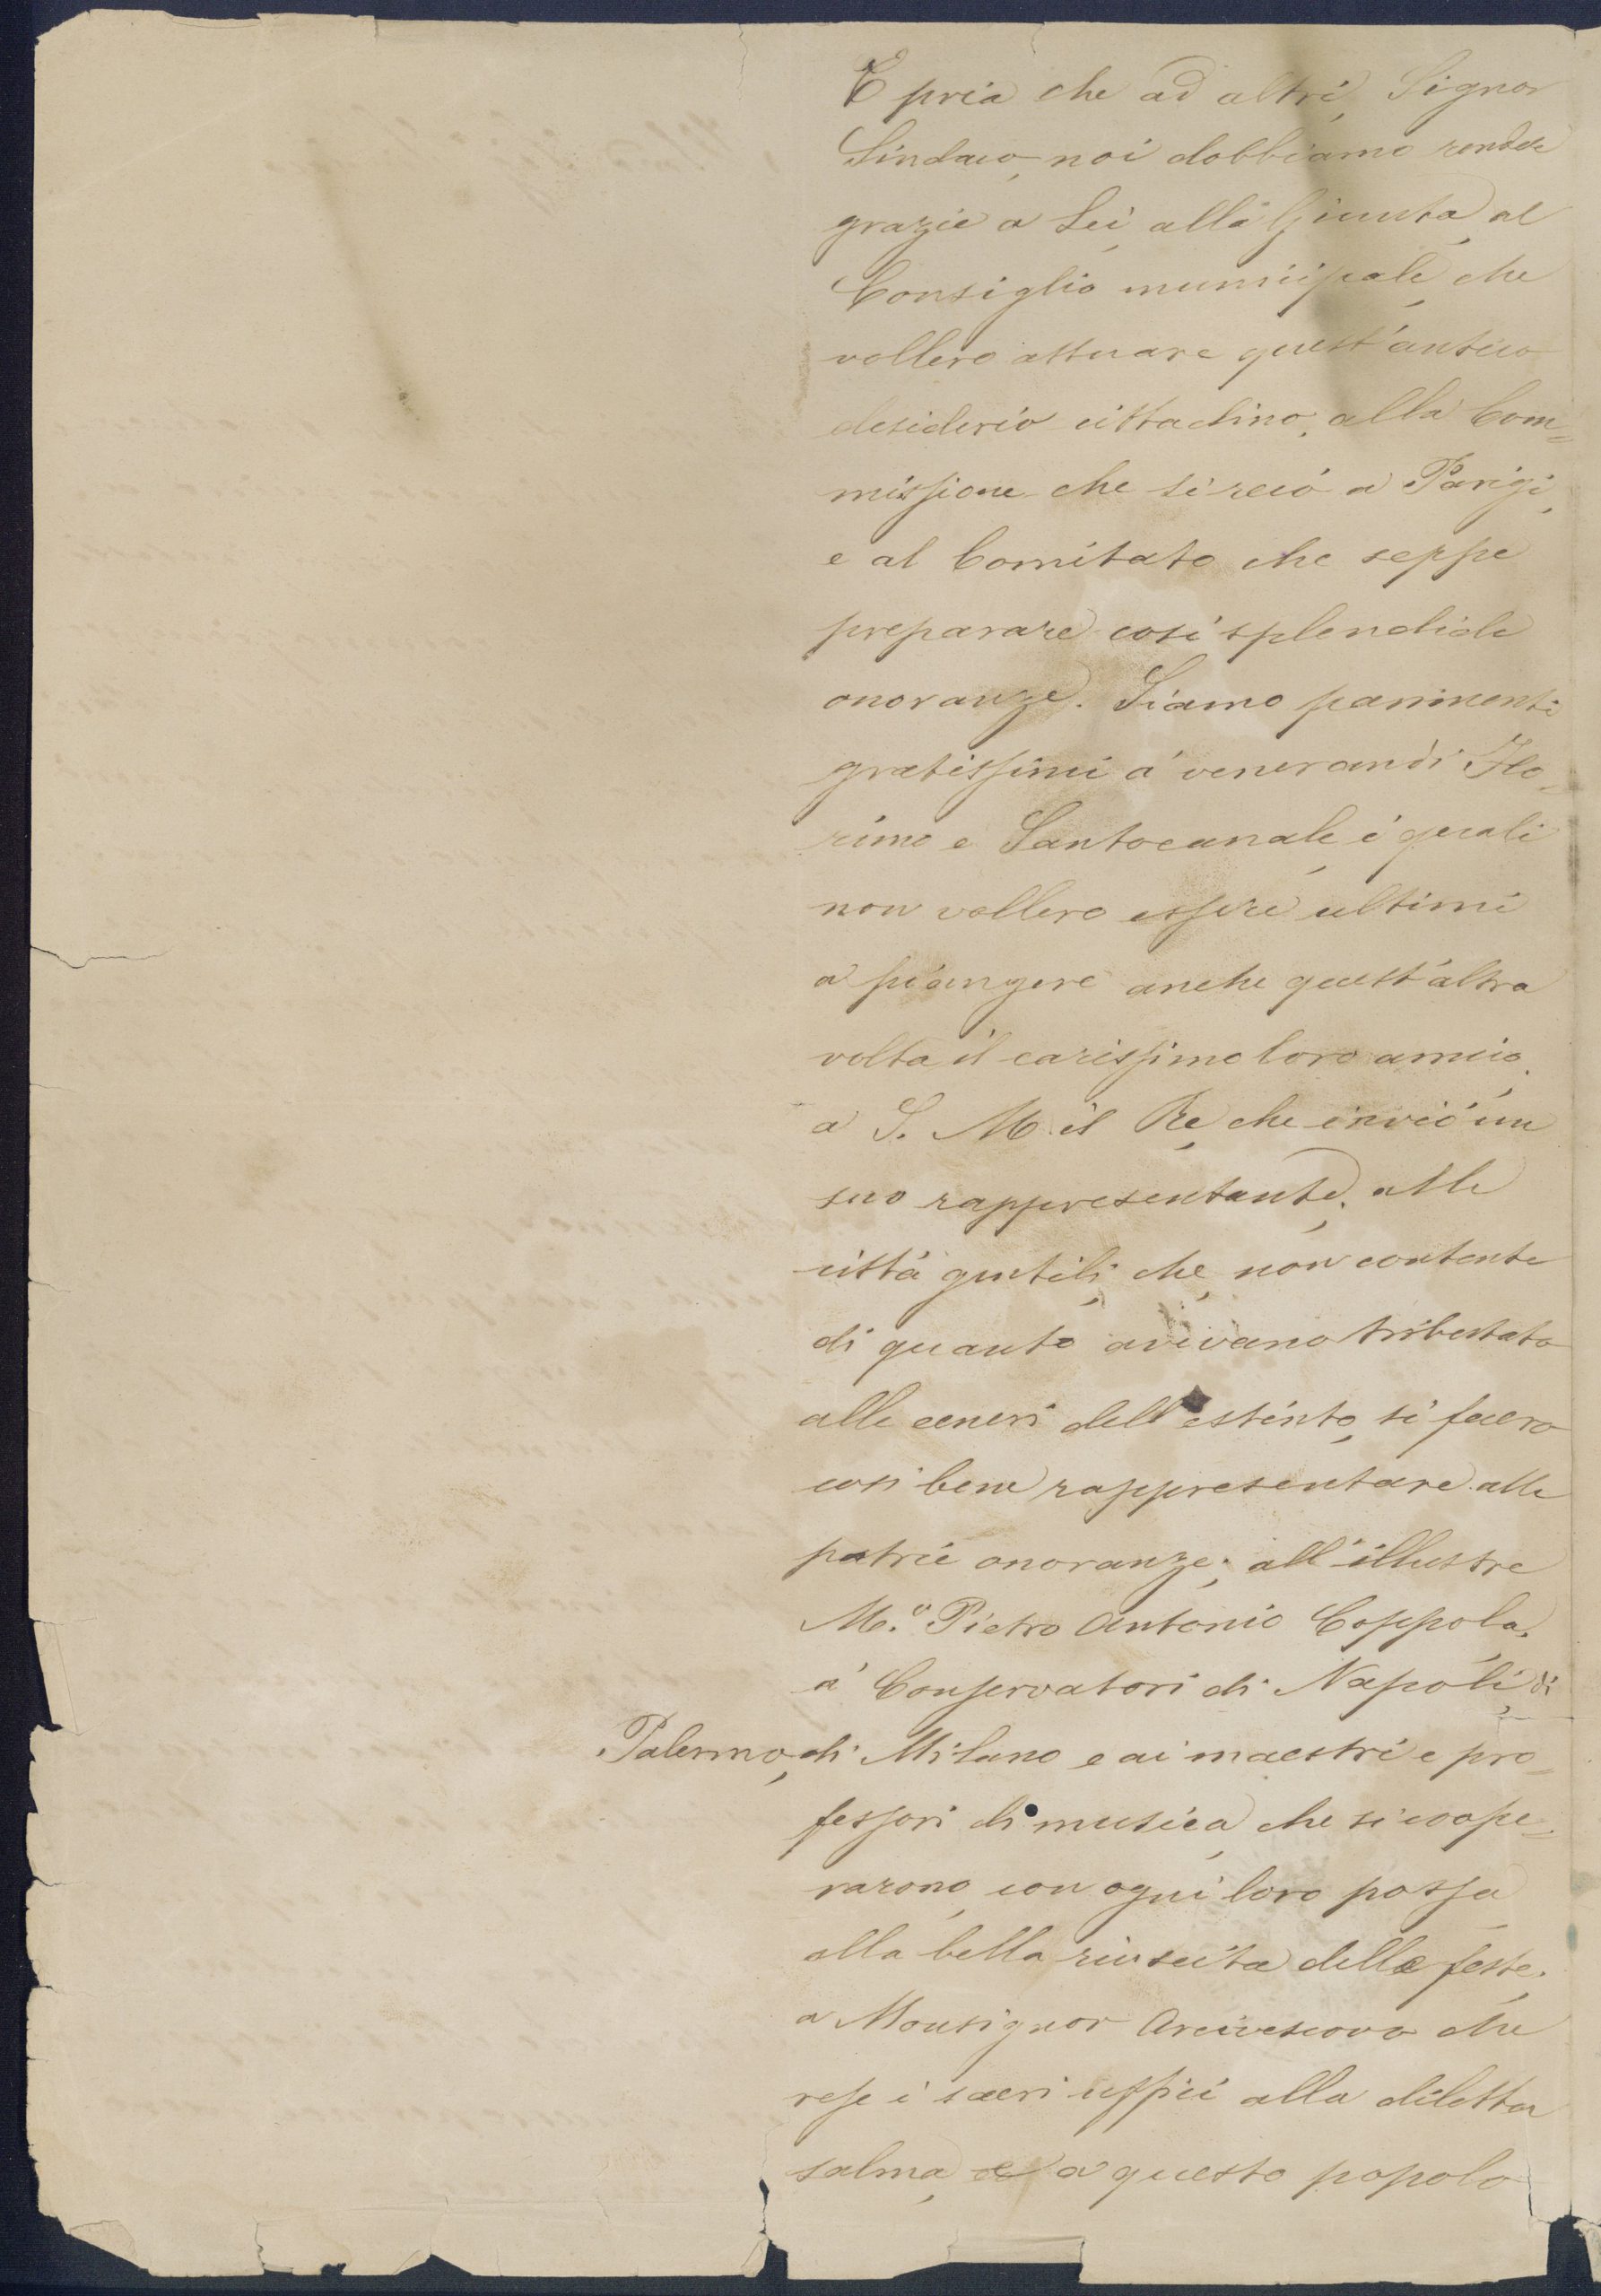 E pria che ad altri, Signor
Sindaco, noi dobbiamo render
grazie a Lei, alla Giunta, al
Consiglio municipale, che
vollero attuare quest'antico
desiderio cittadino, alla Com=
missione che si recò a Parigi,
e al Comitato che seppe
preparare così splendide
onoranze. Siamo parimenti
gratissimi a' venerandi Flo=
rimo e Santocanale, i quali
non vollero essere ultimi
a piangere anche quest'altra
volta il carissimo loro amico;
a S. M. il Re, che inviò un
suo rappresentante; alle
città gentili, che, non contente
di quanto avevano tributato
alle ceneri dell'estinto, si fecero
così bene rappresentare alle
patrie onoranze; all'illustre
M.o Pietro Antonio Coppola;
a' Conservatori di Napoli, di
Palermo, di Milano e ai maestri e pro=
fessori di musica, che si coope=
rarono, con ogni loro possa,
alla bella riuscita delle feste;
a Monsignor Arcivescovo che
rese i sacri uffici alla diletta
salma, e a questo popolo